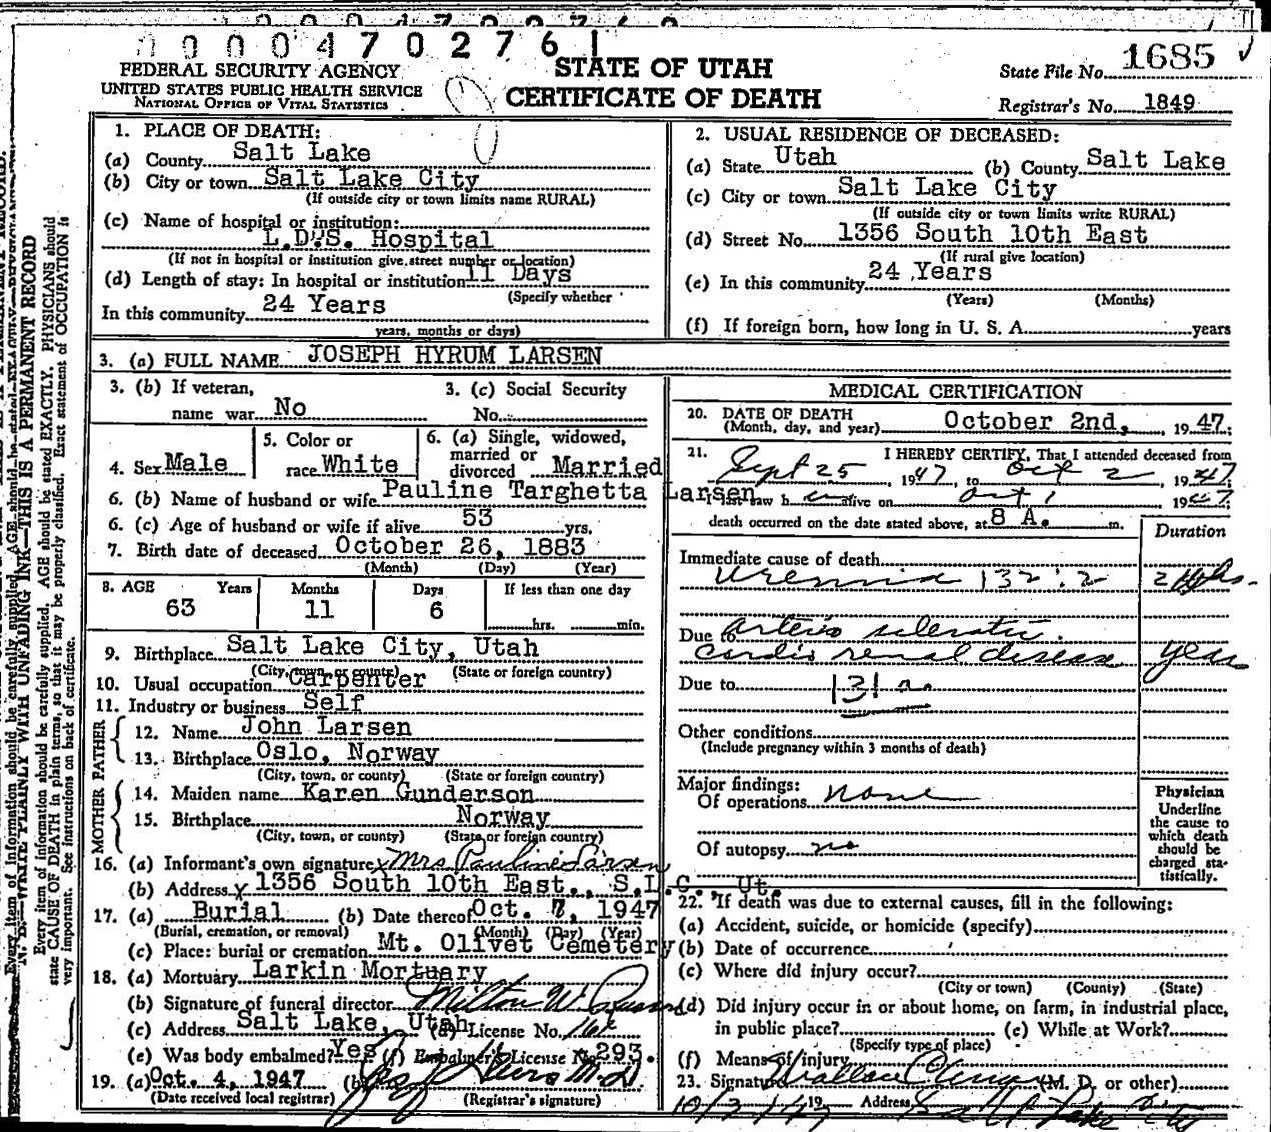 0000470276
FEDERAL SECURITY AGENCY
UNITED STATES PUBLIC HEALTH SERVICE
NATIONAL OFFICE OF VITAL STATISTICS
STATE OF UTAH
CERTIFICATE OF DEATH
State File No. 1685
Registrar's No. 1849
1. PLACE OF DEATH:
(a) County Salt Lake
(b) City or town Salt Lake City
(If outside city or town limits name RURAL)
(c) Name of hospital or institution:
L.D.S. Hospital
(If not in hospital or institution give street number or location)
(d) Length of stay: In hospital or institution 11 Days
(Specify whether
In this community 24 Years
years, months or days)
2. USUAL RESIDENCE OF DECEASED:
(a) State Utah (b) County Salt Lake
(c) City or town Salt Lake City
(If outside city or town limits write RURAL)
(d) Street No. 1356 South 10th East
(If rural give location)
(e) In this community 24 Years
(Years) (Months)
(f) If foreign born, how long in U. S. A. years
3. (a) FULL NAME JOSEPH HYRUM LARSEN
3. (b) If veteran,
name war No
3. (c) Social Security
No.
4. Sex Male
5. Color or
race White
6. (a) Single, widowed,
married or
divorced Married
6. (b) Name of husband or wife Pauline Targhetta Larsen
6. (c) Age of husband or wife if alive 53 yrs.
7. Birth date of deceased October 26, 1883
(Month) (Day) (Year)
8. AGE Years Months Days If less than one day
63 11 6 hrs. min.
9. Birthplace Salt Lake City, Utah
(City, town, or county) (State or foreign country)
10. Usual occupation Carpenter
11. Industry or business Self
FATHER
12. Name John Larsen
13. Birthplace Oslo, Norway
(City, town, or county) (State or foreign country)
MOTHER
14. Maiden name Karen Gunderson
15. Birthplace Norway
(City, town, or county) (State or foreign country)
16. (a) Informant's own signature x Mrs. Pauline Larsen
(b) Address x 1356 South 10th East., S.L.C., Ut.
17. (a) Burial (b) Date thereof Oct. 7, 1947
(Burial, cremation, or removal) (Month) (Day) (Year)
(c) Place: burial or cremation Mt. Olivet Cemetery
18. (a) Mortuary Larkin Mortuary
(b) Signature of funeral director Milton W.
(c) Address Salt Lake, Utah (d) License No.
(e) Was body embalmed? Yes (f) Embalmer's License No. 293.
19. (a) Oct. 4, 1947 (b) M.D.
(Date received local registrar) (Registrar's signature)
MEDICAL CERTIFICATION
20. DATE OF DEATH
(Month, day, and year) October 2nd, , 1947.
21. I HEREBY CERTIFY, That I attended deceased from
Sept 25, 1947, to Oct 2, 1947
I last saw h alive on Oct 1 1947.
death occurred on the date stated above, at 8 A. m.
Duration
Immediate cause of death
Uremia 132:2 2
Due to Arterio sclerotic
cardio renal disease years
Due to 131a
Other conditions
(Include pregnancy within 3 months of death)
Major findings:
Of operations none
Of autopsy no
Physician
Underline
the cause to
which death
should be
charged sta-
tistically.
22. If death was due to external causes, fill in the following:
(a) Accident, suicide, or homicide (specify)
(b) Date of occurrence
(c) Where did injury occur?
(City or town) (County) (State)
(d) Did injury occur in or about home, on farm, in industrial place,
in public place? (e) While at Work?
(Specify type of place)
(f) Means of injury
23. Signature Wallace (M. D. or other)
10/3/47 19 Address Salt Lake City
N. B.—WRITE PLAINLY WITH UNFADING INK—THIS IS A PERMANENT RECORD
Every item of information should be carefully supplied. AGE should be stated EXACTLY. PHYSICIANS should
state CAUSE OF DEATH in plain terms, so that it may be properly classified. Exact statement of OCCUPATION is
very important. See instructions on back of certificate.